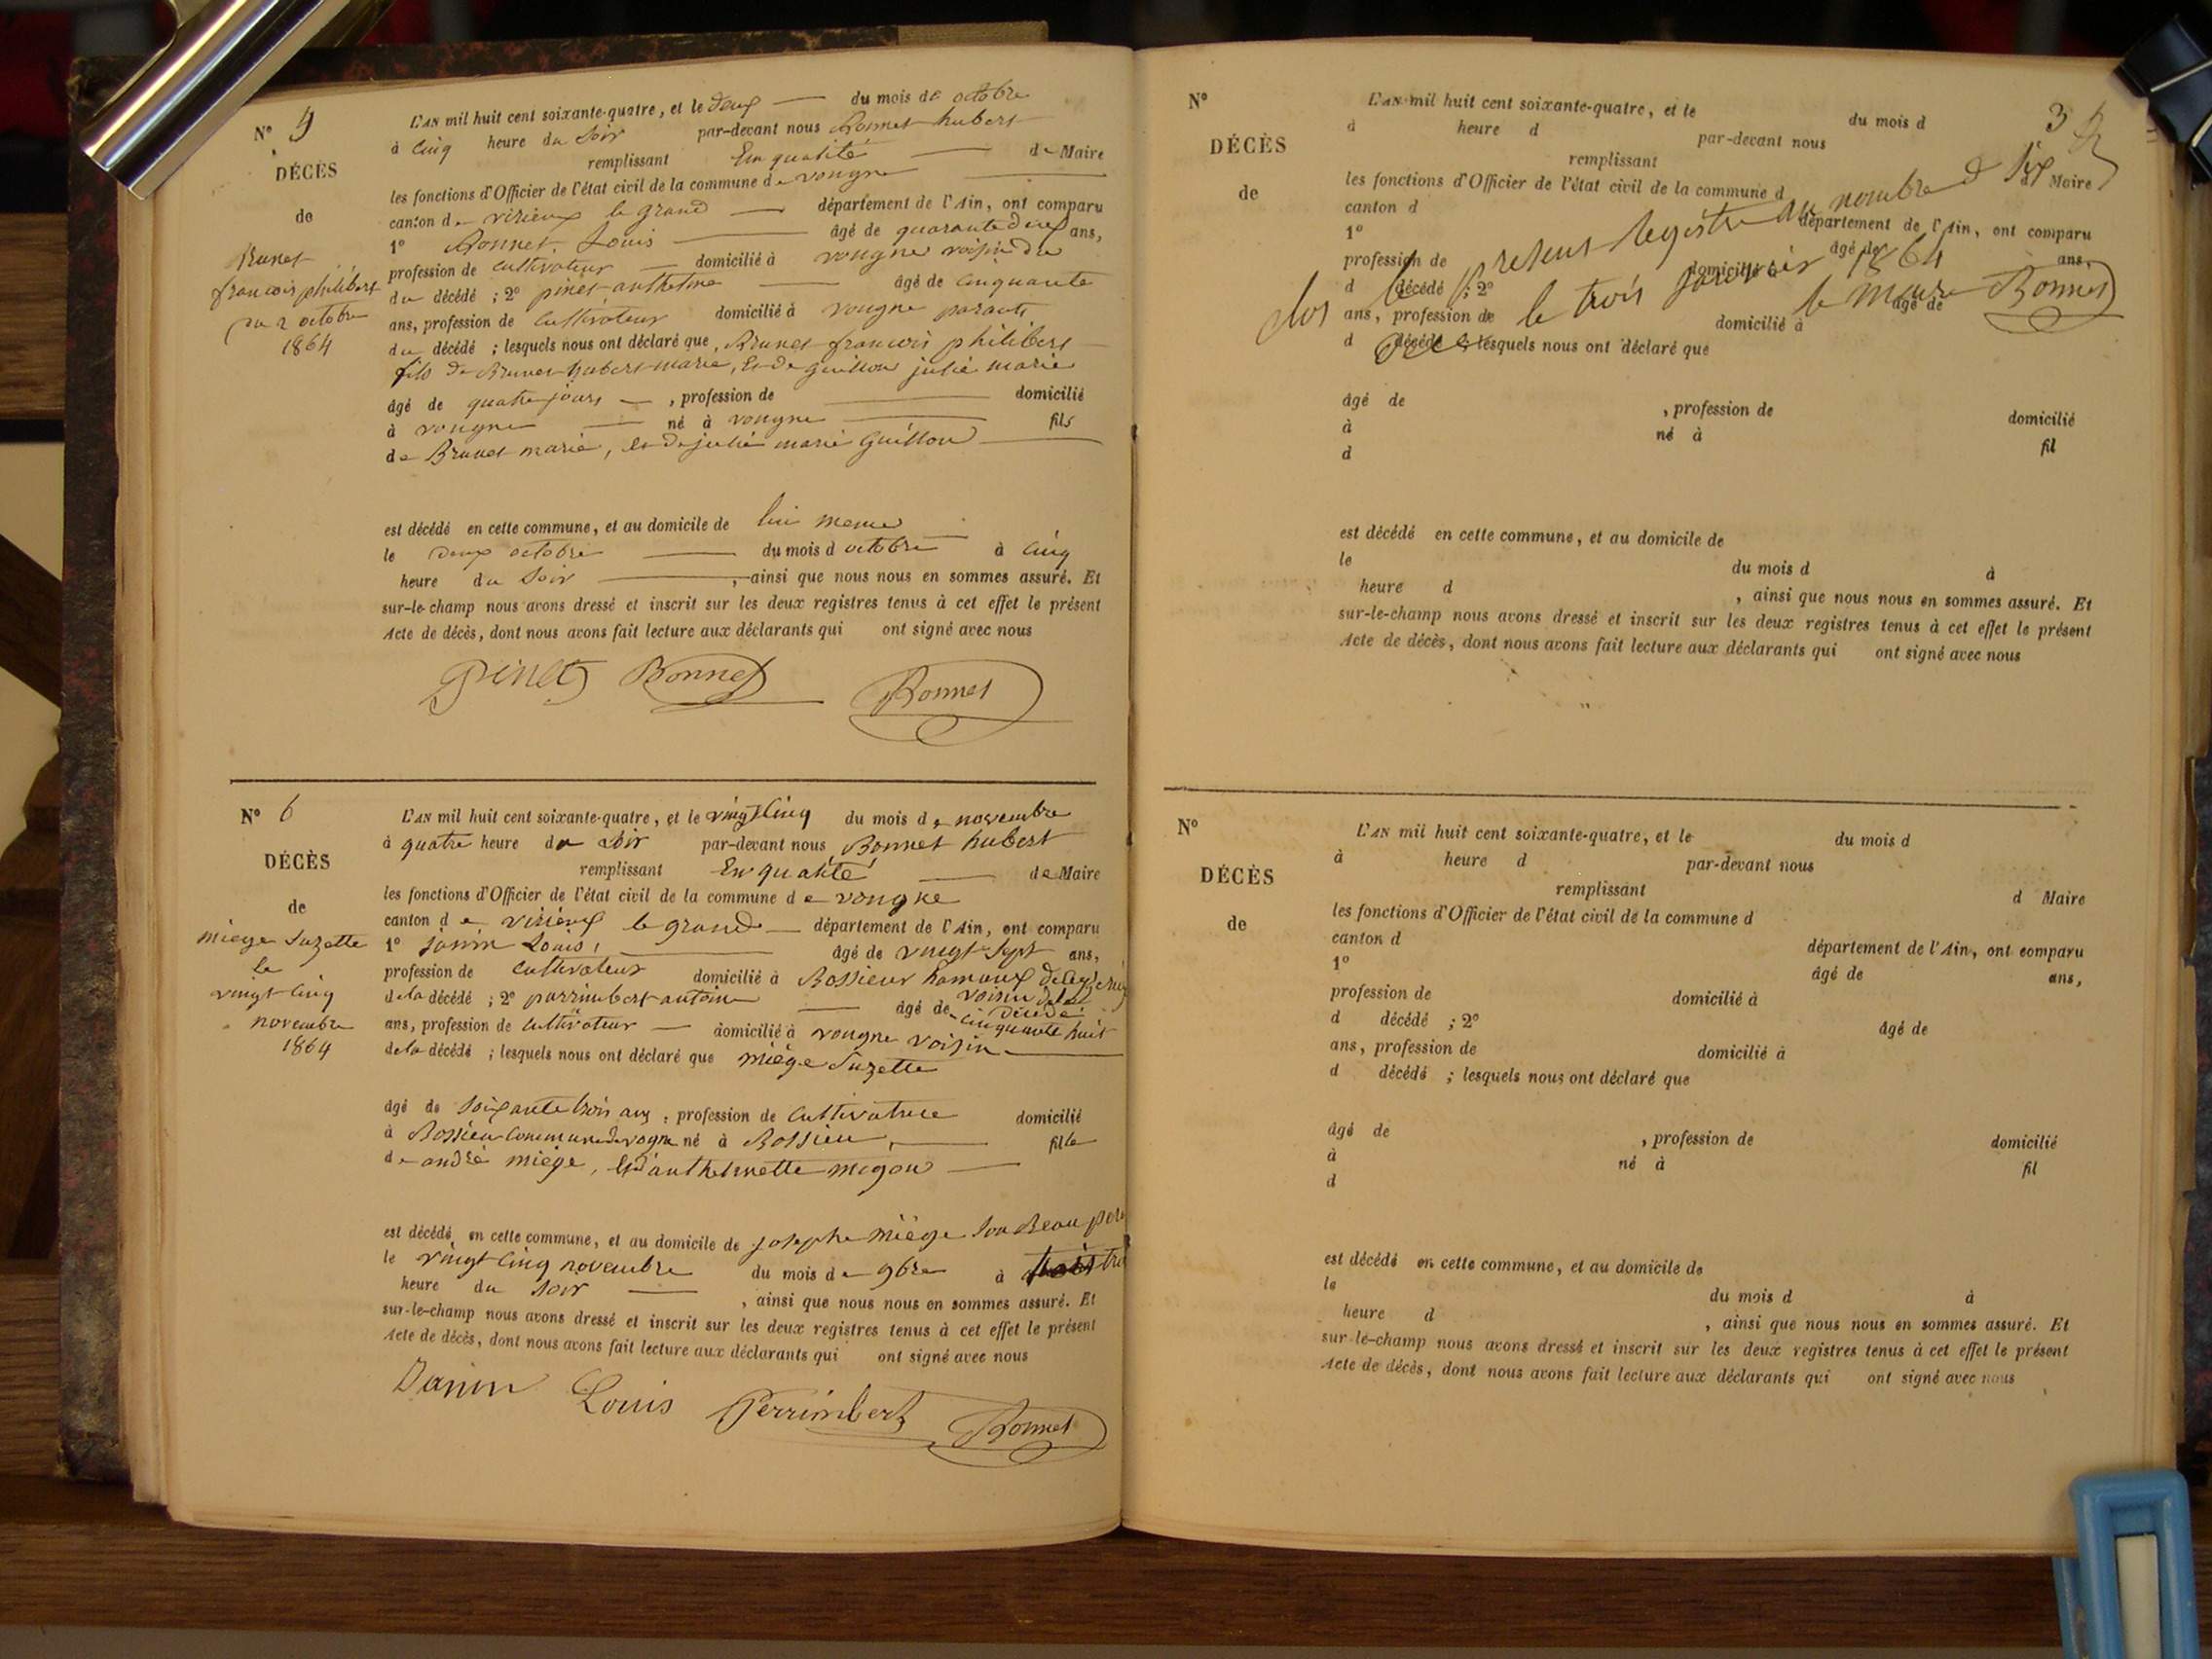 N° 5
DÉCÈS
de
Brunet
francois philibert
du 2 octobre
1864
L'AN mil huit cent soixante-quatre, et le deux du mois de octobre
à cinq heure du soir par-devant nous Bonnet hubert
remplissant En qualité de Maire
les fonctions d'Officier de l'état civil de la commune de vongne
canton de virieux le grand département de l'Ain, ont comparu
1° Bonnet Louis âgé de quarante deux ans,
profession de cultivateur domicilié à vongne voisin du
du décédé ; 2° pinet anthelme âgé de cinquante
ans, profession de cultivateur domicilié à vongne parents
du décédé ; lesquels nous ont déclaré que Brunet francois philibert
fils de Brunet hubert marie, Et de guillon julie marie
âgé de quatre jours , profession de domicilié
à vongne né à vongne fils
de Brunet marie, et de julie marie Guillon
est décédé en cette commune, et au domicile de lui meme
le deux octobre du mois d octobre à cinq
heure du soir , ainsi que nous nous en sommes assuré. Et
sur-le-champ nous avons dressé et inscrit sur les deux registres tenus à cet effet le présent
Acte de décès, dont nous avons fait lecture aux déclarants qui ont signé avec nous
Pinet Bonnet Bonnet
N° 6
DÉCÈS
de
miege Suzette
le
vingt cinq
novembre
1864
L'AN mil huit cent soixante-quatre, et le vingt cinq du mois de novembre
à quatre heure du soir par-devant nous Bonnet hubert
remplissant En qualité de Maire
les fonctions d'Officier de l'état civil de la commune de vongne
canton de virieux le grand département de l'Ain, ont comparu
1° janin Louis, âgé de vingt sept ans,
profession de cultivateur domicilié à Rossieux hamaux
voisin de la
décédé
de la décédé ; 2° perrimbert antoine âgé de cinquante huit
ans, profession de cultivateur domicilié à vongne voisin
de la décédé ; lesquels nous ont déclaré que miège Suzette
âgé de soixante trois ans , profession de cultivatrice domicilié
à Rossieu commune de vogne né à Rossieu, fille
de andré miège, Et d'anthelmette mogon
est décédé en cette commune, et au domicile de josephe miège son Beau père
le vingt cinq novembre du mois de 9bre à
heure du soir , ainsi que nous nous en sommes assuré. Et
sur-le-champ nous avons dressé et inscrit sur les deux registres tenus à cet effet le présent
Acte de décès, dont nous avons fait lecture aux déclarants qui ont signé avec nous
Janin Louis Perrimbert Bonnet
3
N°
DÉCÈS
de
L'AN mil huit cent soixante-quatre, et le du mois d
à heure d par-devant nous
remplissant d Maire
les fonctions d'Officier de l'état civil de la commune d
canton d département de l'Ain, ont comparu
1° âgé de ans,
profession de domicilié à
d décédé ; 2° âgé de
ans, profession de domicilié à
d décédé ; lesquels nous ont déclaré que
clos le présent Registre au nombre de six
le trois janvier 1864
le maire Bonnet
âgé de , profession de domicilié
à né à fil
d
est décédé en cette commune, et au domicile de
le du mois d à
heure d , ainsi que nous nous en sommes assuré. Et
sur-le-champ nous avons dressé et inscrit sur les deux registres tenus à cet effet le présent
Acte de décès, dont nous avons fait lecture aux déclarants qui ont signé avec nous
N°
DÉCÈS
de
L'AN mil huit cent soixante-quatre, et le du mois d
à heure d par-devant nous
remplissant d Maire
les fonctions d'Officier de l'état civil de la commune d
canton d département de l'Ain, ont comparu
1° âgé de ans,
profession de domicilié à
d décédé ; 2° âgé de
ans, profession de domicilié à
d décédé ; lesquels nous ont déclaré que
âgé de , profession de domicilié
à né à fil
d
est décédé en cette commune, et au domicile de
le du mois d à
heure d , ainsi que nous nous en sommes assuré. Et
sur-le-champ nous avons dressé et inscrit sur les deux registres tenus à cet effet le présent
Acte de décès, dont nous avons fait lecture aux déclarants qui ont signé avec nous